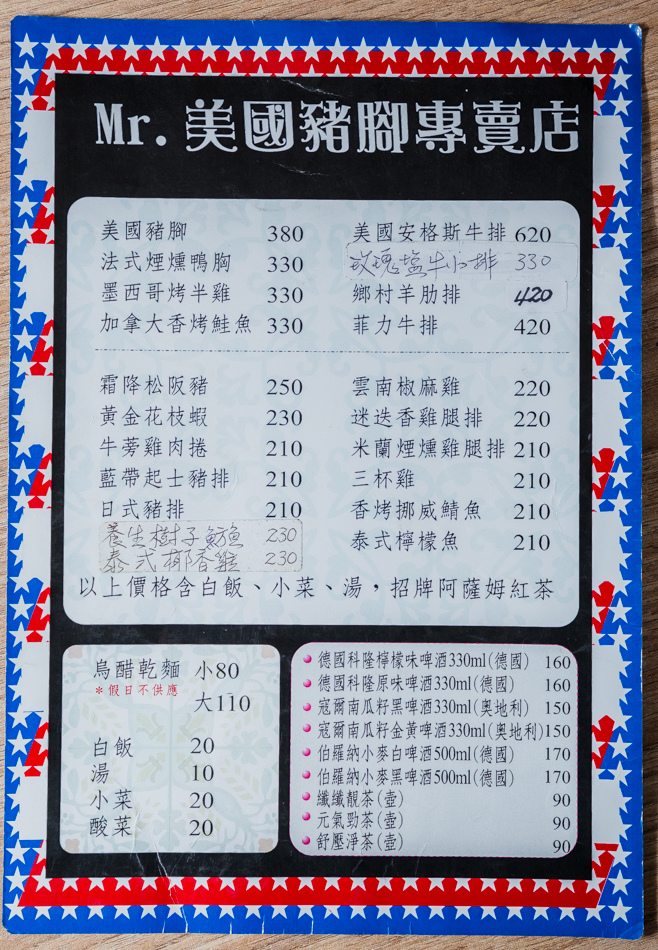 Mr. 美國豬腳專賣店
美國豬腳 380
法式煙燻鴨胸 330
墨西哥烤半雞 330
加拿大香烤鮭魚 330
美國安格斯牛排 620
玫瑰塩牛小排 330
鄉村羊肋排 420
菲力牛排 420
霜降松阪豬 250
黃金花枝蝦 230
牛蒡雞肉捲 210
藍帶起士豬排 210
日式豬排 210
養生樹子魴魚 230
泰式椰香雞 230
雲南椒麻雞 220
迷迭香雞腿排 220
米蘭煙燻雞腿排 210
三杯雞 210
香烤挪威鯖魚 210
泰式檸檬魚 210
以上價格含白飯、小菜、湯，招牌阿薩姆紅茶
烏醋乾麵 小80
*假日不供應
大110
白飯 20
湯 10
小菜 20
酸菜 20
德國科隆檸檬味啤酒330ml(德國) 160
德國科隆原味啤酒330ml(德國) 160
寇爾南瓜籽黑啤酒330ml(奧地利) 150
寇爾南瓜籽金黃啤酒330ml(奧地利) 150
伯羅納小麥白啤酒500ml(德國) 170
伯羅納小麥黑啤酒500ml(德國) 170
纖纖靚茶(壺) 90
元氣勁茶(壺) 90
舒壓淨茶(壺) 90